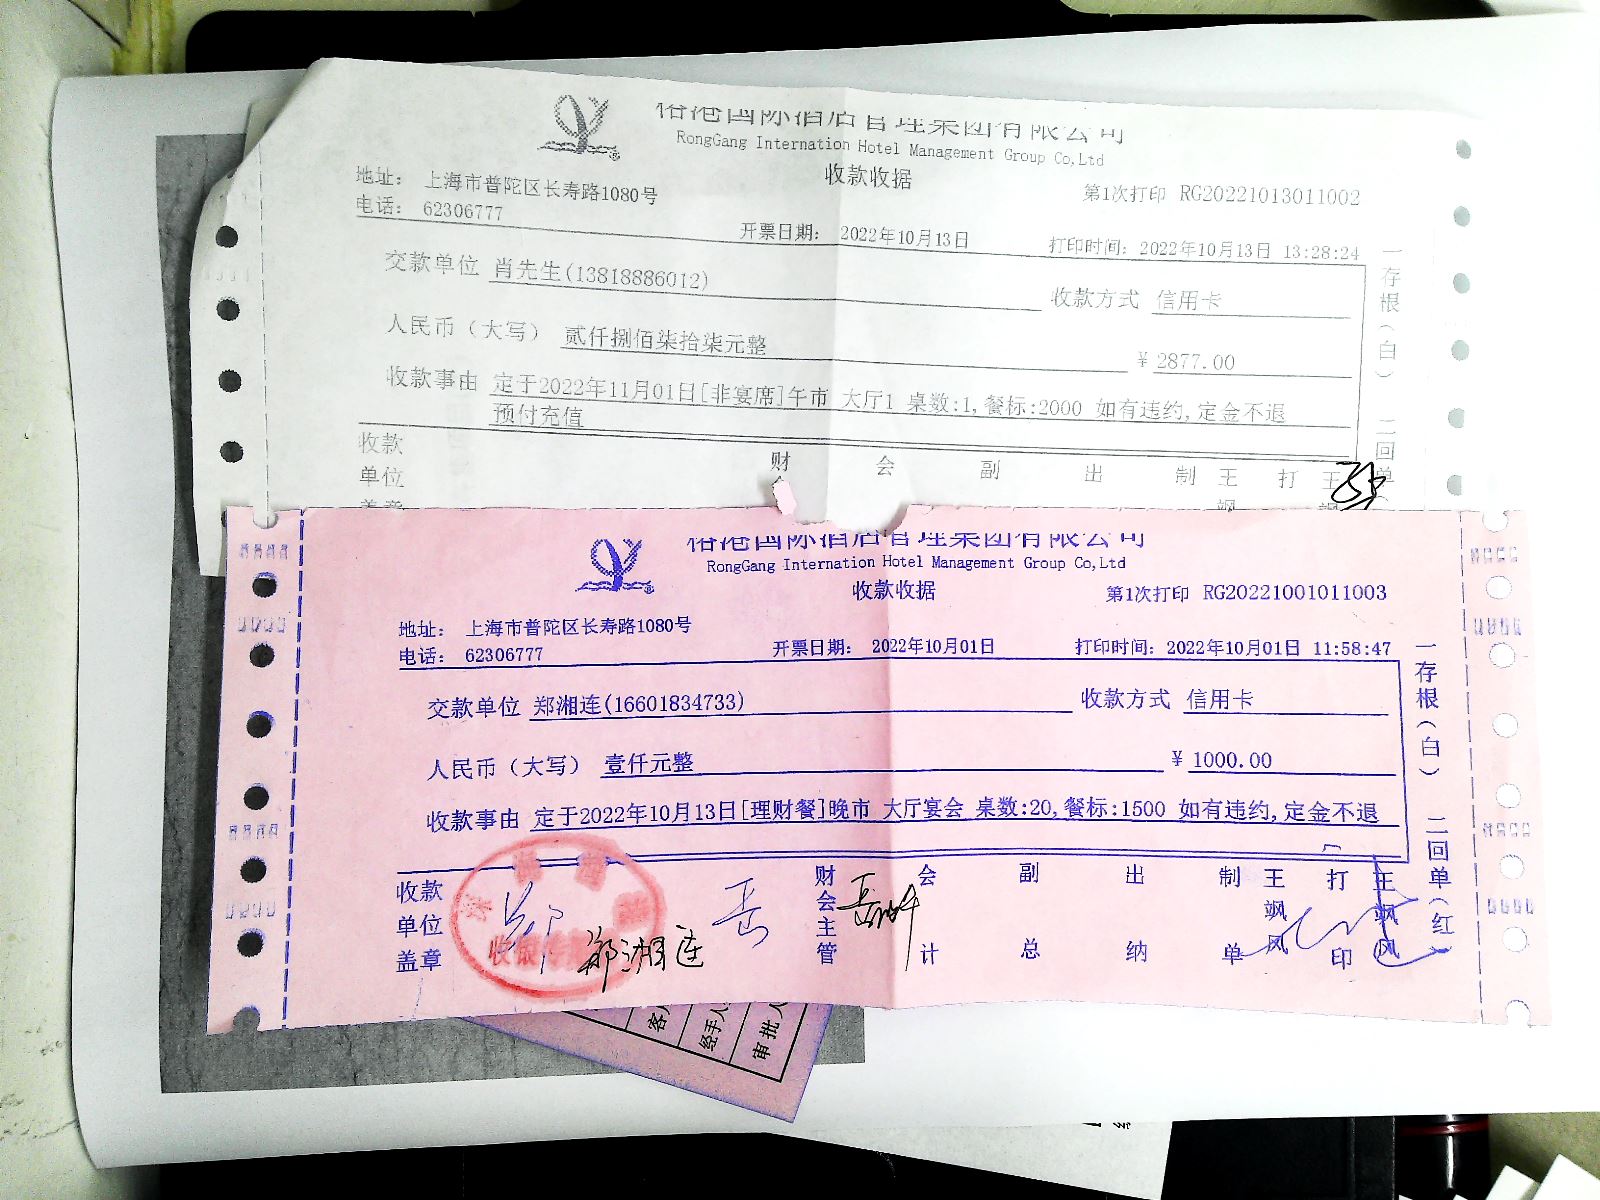 裕港国际酒店管理集团有限公司
RongGang Internation Hotel Management Group Co,Ltd
收款收据
地址： 上海市普陀区长寿路1080号
第1次打印 RG20221013011002
电话： 62306777
开票日期： 2022年10月13日
打印时间：2022年10月13日 13:28:24
交款单位 肖先生(13818886012)
收款方式 信用卡
人民币（大写） 贰仟捌佰柒拾柒元整
¥ 2877.00
收款事由 定于2022年11月01日[非宴席]午市 大厅1 桌数:1,餐标:2000 如有违约,定金不退
预付充值
收款 财 会 副 出 制 王 打 王
单位 飒 飒
盖章
一存根（白） 二回单
裕港国际酒店管理集团有限公司
RongGang Internation Hotel Management Group Co,Ltd
收款收据
第1次打印 RG20221001011003
地址： 上海市普陀区长寿路1080号
电话： 62306777
开票日期： 2022年10月01日
打印时间：2022年10月01日 11:58:47
交款单位 郑湘连(16601834733)
收款方式 信用卡
人民币（大写） 壹仟元整
¥ 1000.00
收款事由 定于2022年10月13日[理财餐]晚市 大厅宴会 桌数:20,餐标:1500 如有违约,定金不退
收款单位盖章
郑湘连
岳
财会主管
会计
副总
出纳
制单 王飒风
打印 王飒风
一存根（白） 二回单（红）
客
经手人
审批人